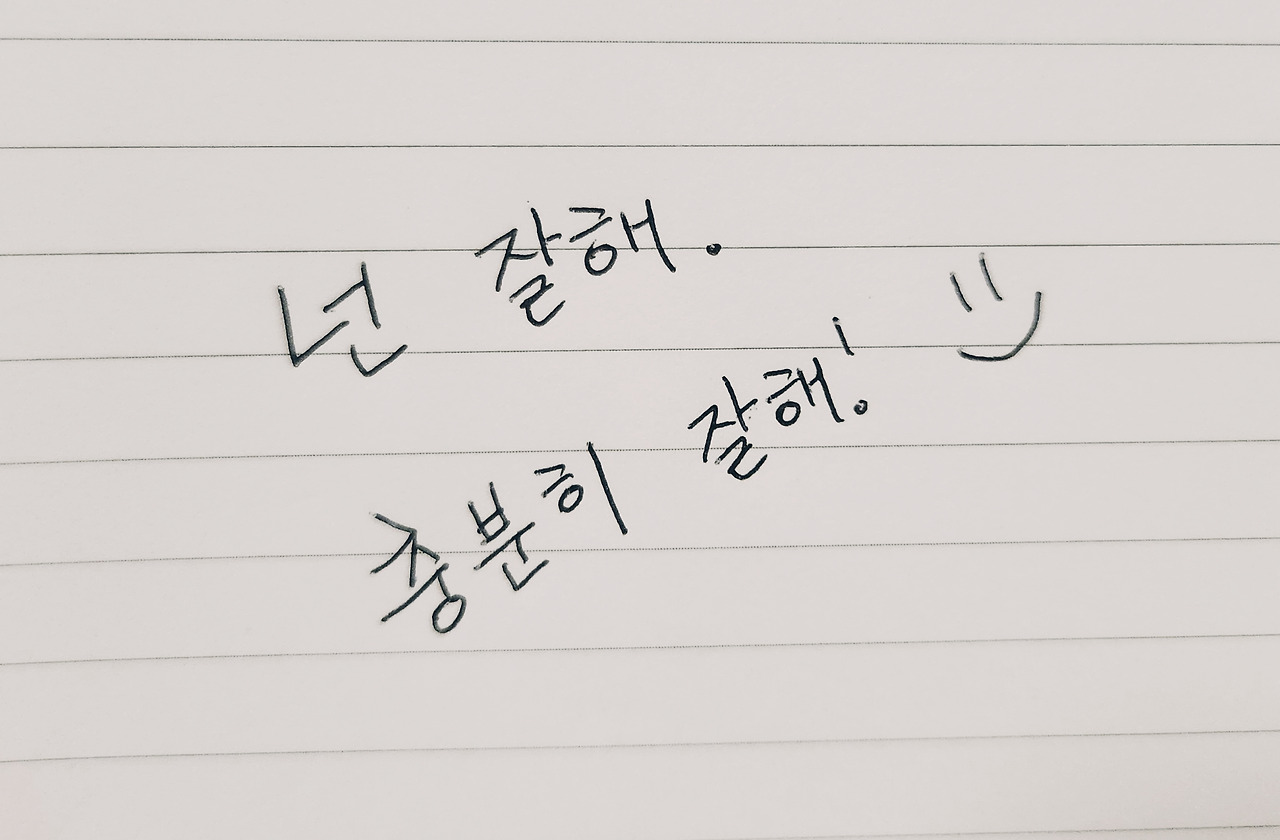 넌 잘해.
충분히 잘해!